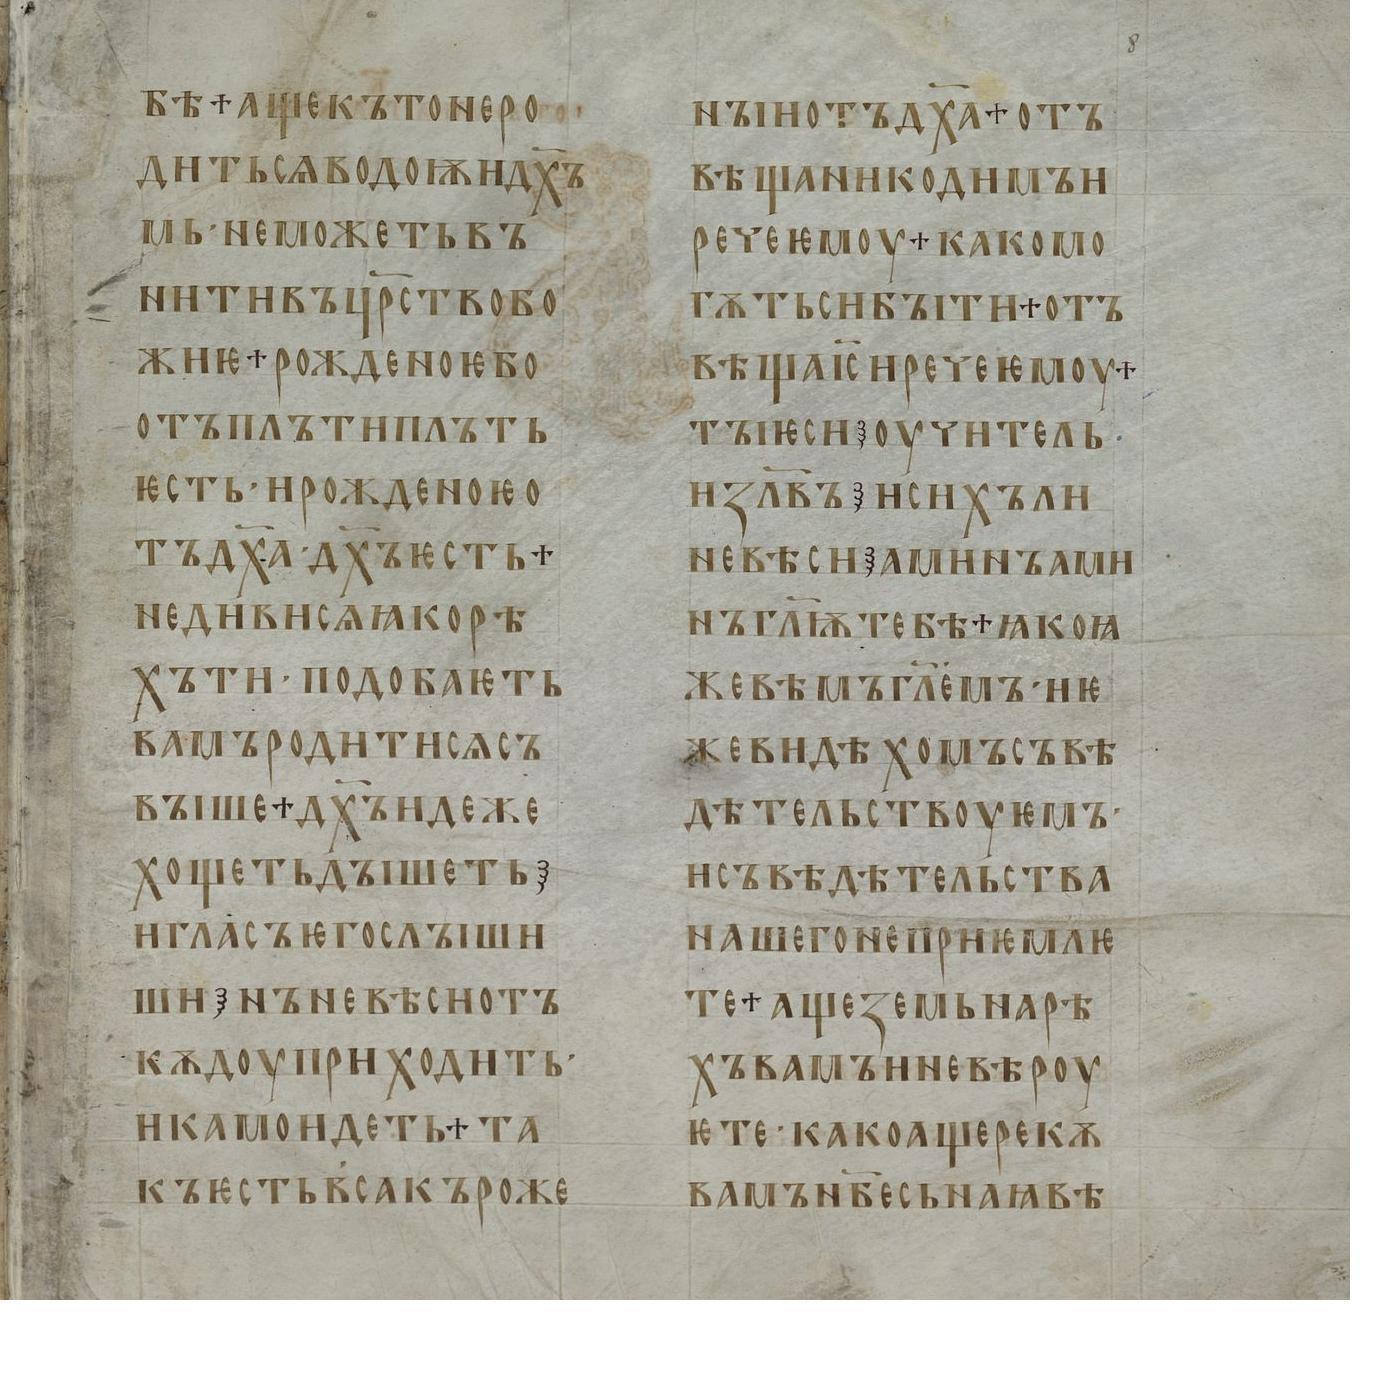 8
бѣ+аще къто не ро
дить сѧ водоѭ и дх҃ъ
мь· не можеть въ
нити въ цр҃ство бо
жиѥ+рождено ѥ бо
отъ плъти плъть
ѥсть· и рожденоѥ о
тъ дх҃а· дх҃ъ ѥсть+
не диви сѧ ꙗко рѣ
хъ ти· подобаѥть
вамъ родити сѧ съ
въıше+дх҃ъ идеже
хощеть дъıшеть ⸾
и гласъ ѥго слъıши
ши ⸾ нъ не вѣси отъ
кѫдоу приходить·
и камо идеть+та
къ ѥсть в҇сакъ роже
нъıи отъ дх҃а+отъ
вѣща никодимъ и
рече ѥмоу+како мо
гѫть си бъıти+отъ
вѣща іс҃ и рече ѥмоу+
тъı ѥси ⸾ оучитель·
из҃лвъ ⸾ и сихъ ли
не вѣси ⸾ аминъ ами
нъ гл҃ѭ тебѣ+ꙗко ꙗ
же вѣмъ гл҃ѥмъ· и ѥ
же видѣхомъ съвѣ
дѣтельствоуѥмъ·
и съвѣдѣтельства
нашего не приѥмлѥ
те+аще земьна рѣ
хъ вамъ и не вѣроу
ѥте· како аще рекѫ
вамъ нб҃есьнаꙗ вѣ